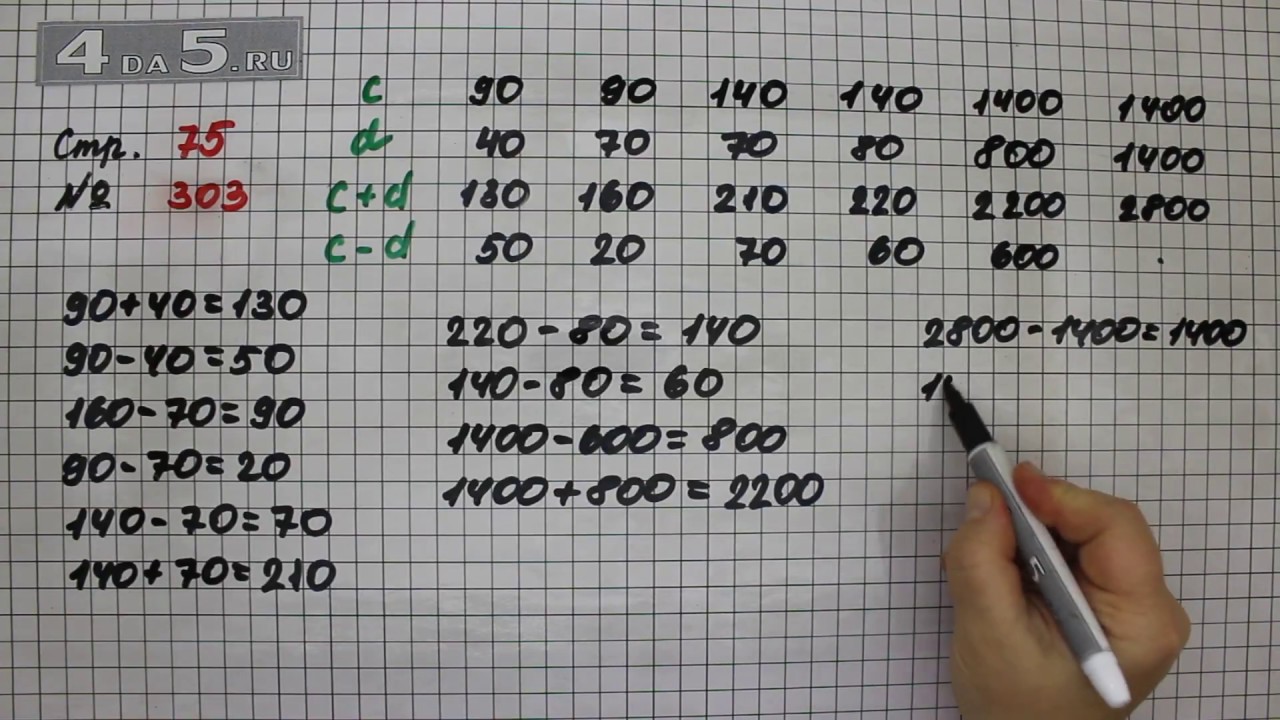 4 DA 5.RU
Стр. 75
№ 303
c 90 90 140 140 1400 1400
d 40 70 70 80 800 1400
c+d 130 160 210 220 2200 2800
c-d 50 20 70 60 600 .
90+40=130
90-40=50
160-70=90
90-70=20
140-70=70
140+70=210
220-80=140
140-80=60
1400-600=800
1400+800=2200
2800-1400=1400